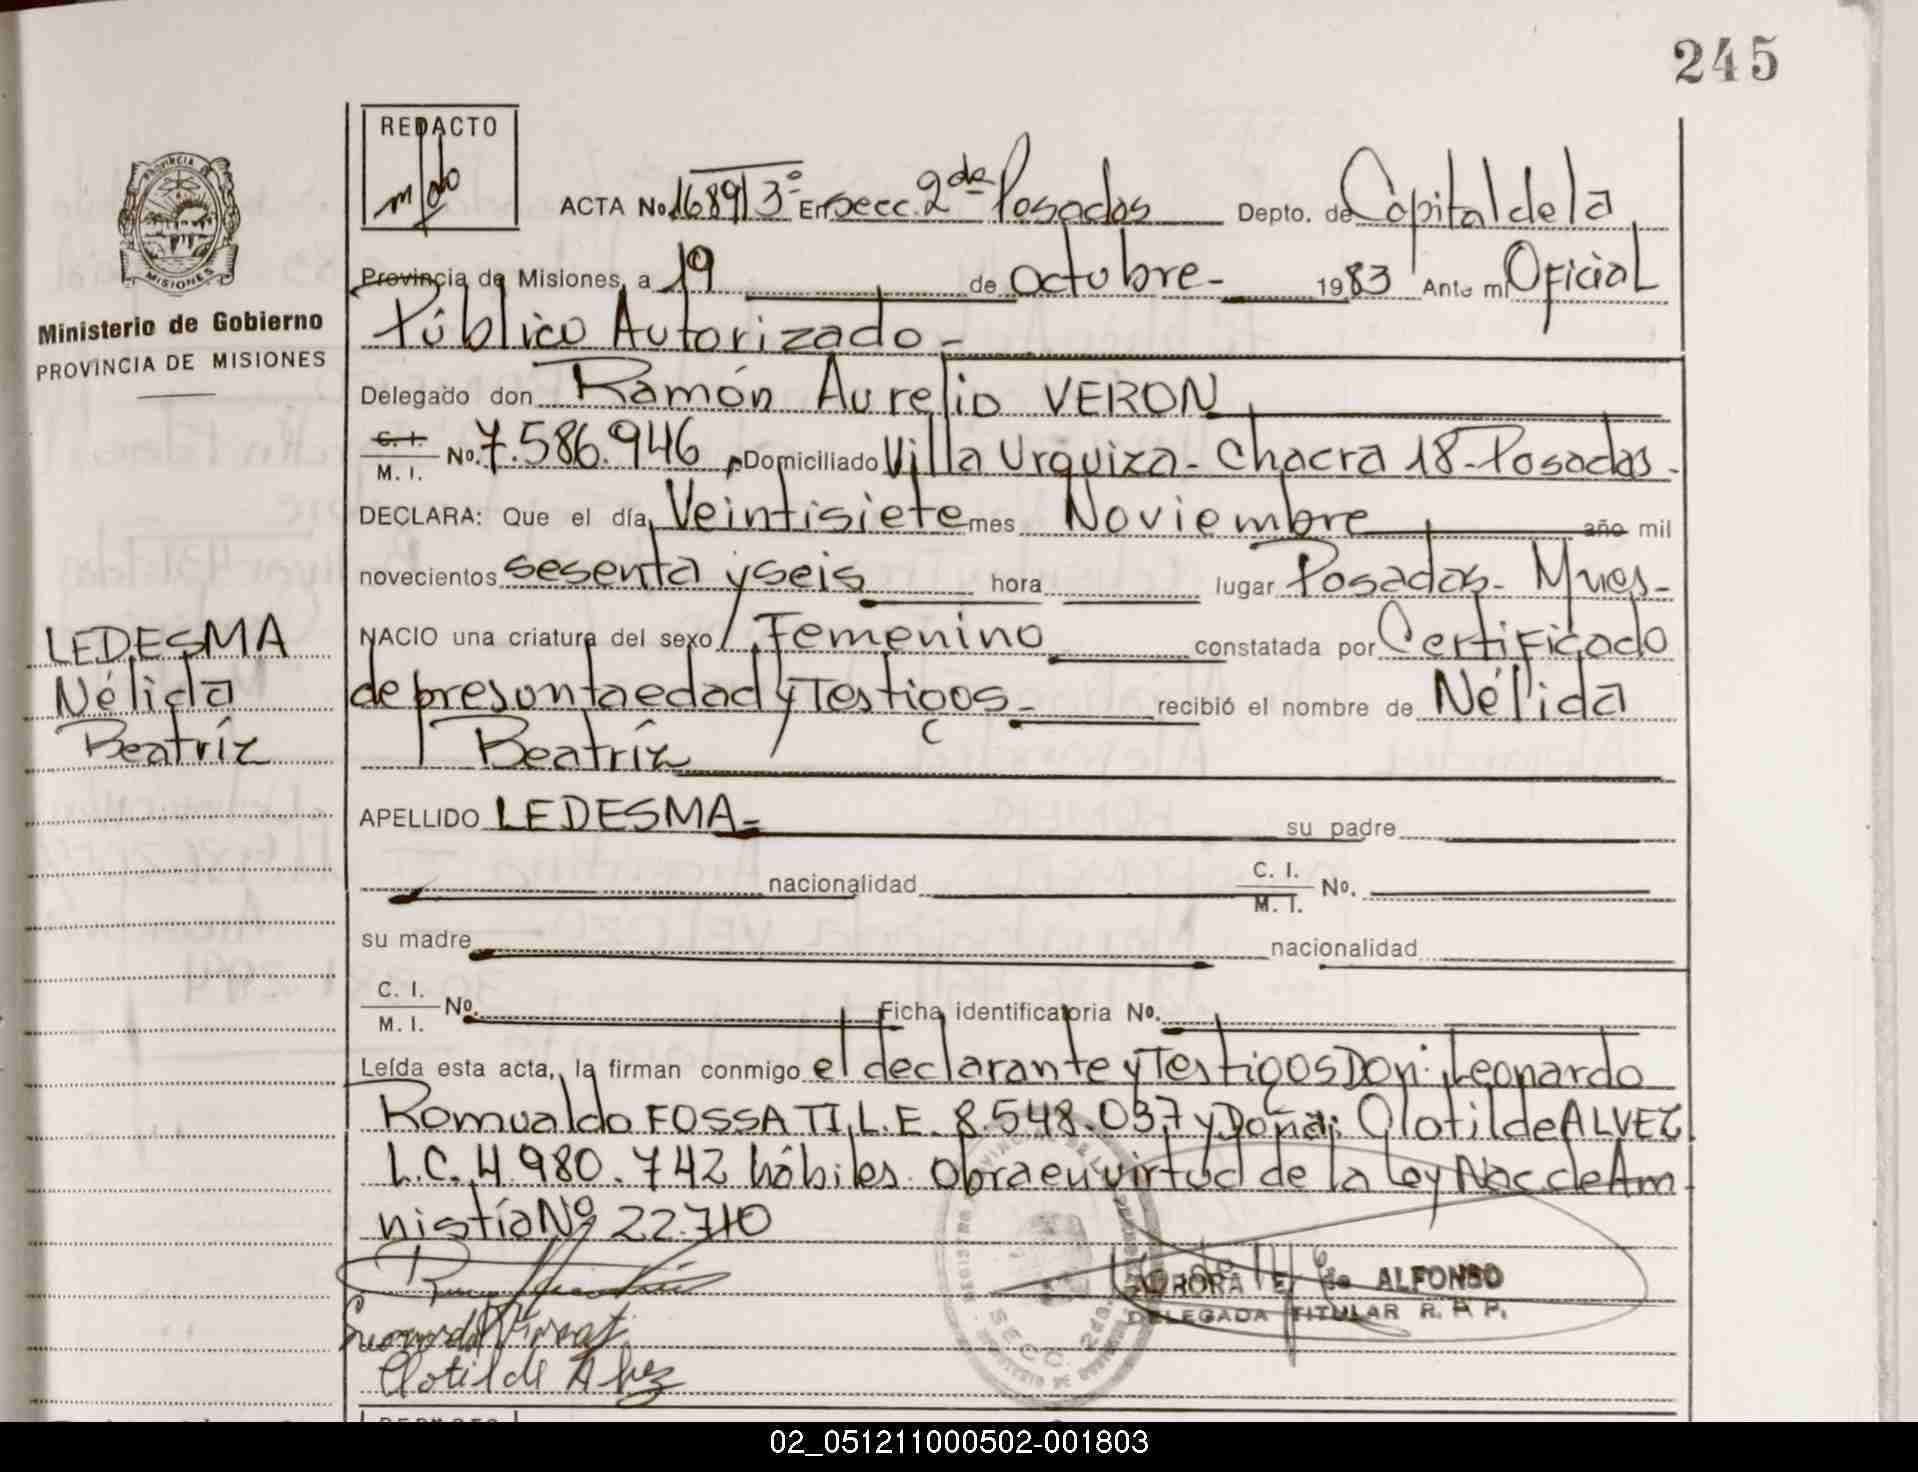 245
REDACTO
ACTA No. 1689 13° En Secc. 2da Posadas Depto. de Capital de la
Provincia de Misiones, a 19 de Octubre - 1983 Ante mi Oficial
Público Autorizado -
PROVINCIA
MISIONES
Ministerio de Gobierno
PROVINCIA DE MISIONES
Delegado don Ramón Aurelio VERON
C. I.
M. I. No. 7.586.946, Domiciliado Villa Urquiza - Chacra 18 - Posadas -
DECLARA: Que el día Veintisiete mes Noviembre año mil
novecientos sesenta y seis hora lugar Posadas - Mnes -
NACIO una criatura del sexo Femenino constatada por Certificado
de presunta edad y Testigos - recibió el nombre de Nélida
Beatríz
LEDESMA
Nélida
Beatríz
APELLIDO LEDESMA - su padre
nacionalidad C. I.
M. I. No.
su madre nacionalidad
C. I.
M. I. No. Ficha identificatoria No.
Leída esta acta, la firman conmigo el declarante y Testigos Don: Leonardo
Romualdo FOSSATI, L.E. 8.548.037 y Doña: Clotilde ALVEZ
L.C. 4.980.742 hábiles. Obra en virtud de la Ley Nac de Am
nistía Nº 22.710
AURORA E. de ALFONSO
DELEGADA TITULAR R. P. P.
SECC. 2da.
Clotilde Alvez
REDACTO
02_051211000502-001803